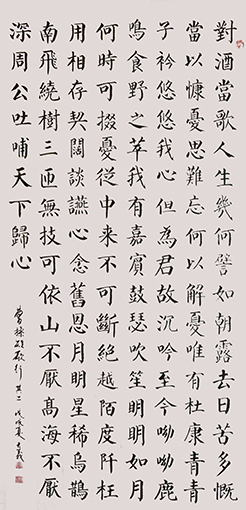 對酒當歌人生幾何譬如朝露去日苦多慨
當以慷憂思難忘何以解憂唯有杜康青青
子衿悠悠我心但為君故沉吟至今呦呦鹿
鳴食野之苹我有嘉賓鼓瑟吹笙明明如月
何時可掇憂從中來不可斷絕越陌度阡枉
用相存契闊談讌心念舊恩月明星稀烏鵲
南飛繞樹三匝無枝可依山不厭高海不厭
深周公吐哺天下歸心
曹操短歌行 其二 戊戌夏